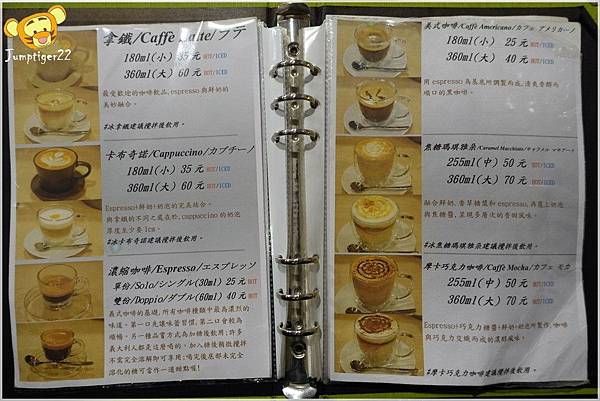 Jumptiger22
拿鐵/Caffè Latte/ラテ
180ml(小) 35 元 HOT/ICED
360ml(大) 60 元 HOT/ICED
最受歡迎的咖啡飲品,espresso 與鮮奶的
美妙融合。
#冰拿鐵建議攪拌後飲用。
卡布奇諾/Cappuccino/カプチーノ
180ml(小) 35 元 HOT/ICED
360ml(大) 60 元 HOT/ICED
Espresso+鮮奶+奶泡的完美結合。
與拿鐵的不同之處在於,cappuccino 的奶泡
厚度至少要 1cm。
#冰卡布奇諾建議攪拌後飲用。
濃縮咖啡/Espresso/エスプレッソ
單份/Solo/シングル(30ml) 25 元 HOT
雙份/Doppio/ダブル(60ml) 40 元 HOT
義式咖啡的基礎,所有咖啡種類中最為濃烈的
味道。第一口先讓味蕾習慣,第二口會較為
順暢。另一種品嘗方式為加糖後飲用;許多
義大利人都是這麼喝的。加入糖後稍微攪拌
不需完全溶解即可享用;喝完後底部未完全
溶化的糖可當作一道甜點喔!
美式咖啡/Caffè Americano/カフェ アメリカーノ
180ml(小) 25 元 HOT/ICED
360ml(大) 40 元 HOT/ICED
用 espresso 為基底所調製而成,清爽香醇而
順口的黑咖啡。
焦糖瑪琪雅朵/Caramel Macchiato/キャラメル マキアート
255ml(中) 50 元 HOT/ICED
360ml(大) 70 元 HOT/ICED
融合鮮奶、香草糖漿和 espresso,再覆上奶泡
與焦糖醬,呈現多層次的香甜風味。
#冰焦糖瑪琪雅朵建議攪拌後飲用。
摩卡巧克力咖啡/Caffè Mocha/カフェ モカ
255ml(中) 50 元 HOT/ICED
360ml(大) 70 元 HOT/ICED
Espresso+巧克力糖醬+鮮奶+奶泡所製作,咖啡
與巧克力交織而成的濃醇風味。
#摩卡巧克力咖啡建議攪拌後飲用。